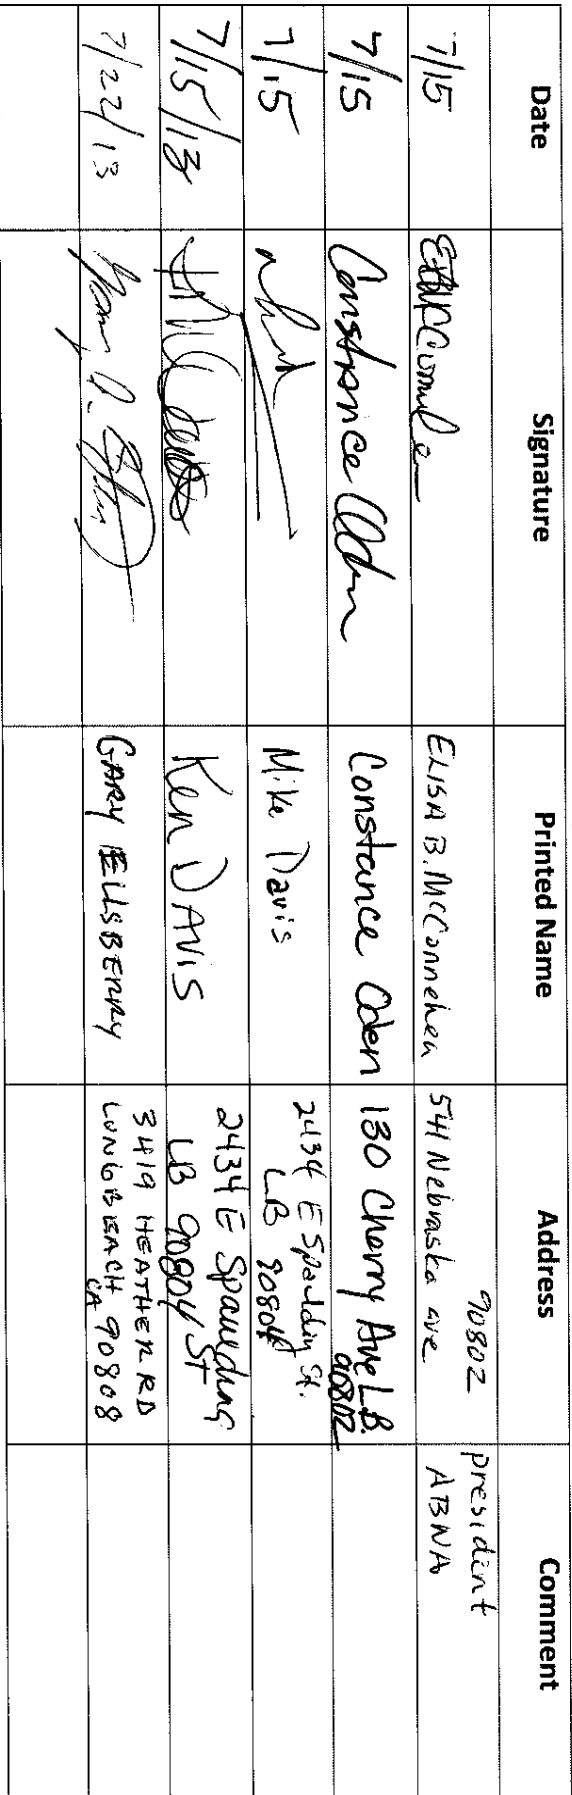 Date Signature Printed Name Address Comment
7/15 ELISA B. McConnehea 541 Nebraska ave 90802 president ABNA
7/15 Constance Oden Constance Oden 130 Cherry Ave L.B. 90802
7/15 Mike Davis 2434 E Spaulding St. LB 90804
7/15/13 Ken DAVIS 2434 E Spaulding St LB 90804
7/22/13 GARY ELLSBERRY 3419 HEATHER RD LONG BEACH CA 90808